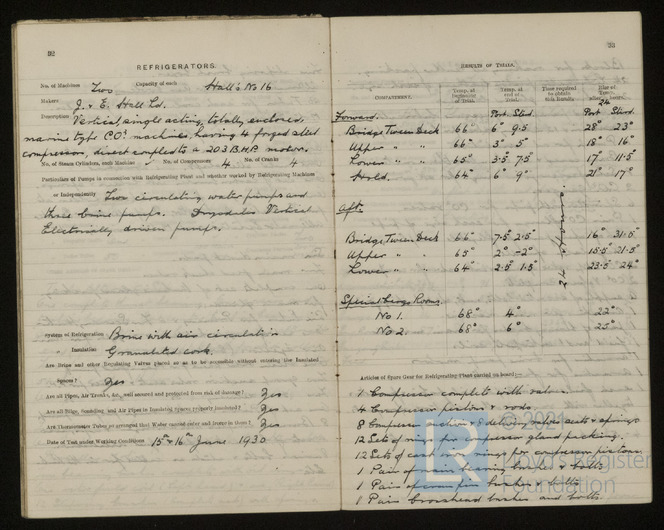 32
REFRIGERATORS.
No. of Machines Two Capacity of each Hall's No 16
Makers J. & E. Hall Ld.
Description Vertical, single acting, totally enclosed,
marine type CO2 machines, having 4 forged steel
compressors, direct coupled to a 203 B.H.P. motor.
No. of Steam Cylinders, each Machine No. of Compressors 4 No. of Cranks 4
Particulars of Pumps in connection with Refrigerating Plant and whether worked by Refrigerating Machines
or Independently Two circulating water pumps and
three brine pumps. Drysdales Vertical
Electrically driven pumps.
System of Refrigeration Brine with air circulation
" Insulation Granulated cork.
Are Brine and other Regulating Valves placed so as to be accessible without entering the Insulated
Spaces? Yes
Are all Pipes, Air Trunks, &c., well secured and protected from risk of damage? Yes
Are all Bilge, Sounding, and Air Pipes in Insulated Spaces properly insulated? Yes
Are Thermometer Tubes so arranged that Water cannot enter and freeze in them? Yes
Date of Test under Working Conditions 15th & 16th June 1930
33
RESULTS OF TRIALS.
COMPARTMENT. Temp. at beginning of Trial. Temp. at end of Trial. Time required to obtain this Result. Rise of Temp. after 24 hours.
Forward. Port Stbd. Port Stbd.
Bridge Tween Deck 66° 6° 9.5 28° 23°
Upper " " 66° 3° 5° 18° 16°
Lower " " 65° 3.5° 7.5° 17° 11.5°
Hold. 64° 6° 9° 21° 17°
Aft.
Bridge Tween Deck 66° 7.5° 2.5° 16° 31.5°
Upper " " 65° 2° -2° 15.5° 21.5°
Lower " " 64° 2.5° 1.5° 23.5° 24°
24 Hours.
Special Cargo Rooms.
No 1. 68° 4° 22°
No 2. 68° 6° 25°
Articles of Spare Gear for Refrigerating Plant carried on board:—
Compressor complete with valves.
4 Compressor pistons & rods.
8 Compressor suction & delivery valves seats & springs
12 Sets of rings for compressor gland packing.
12 Sets of rings for compressor pistons.
1 Pair of main bearing bushes & bolts.
1 Pair of bushes & bolts.
1 Pair Crosshead bushes and bolts.
© 2021
LR
Lloyd's Register
Foundation